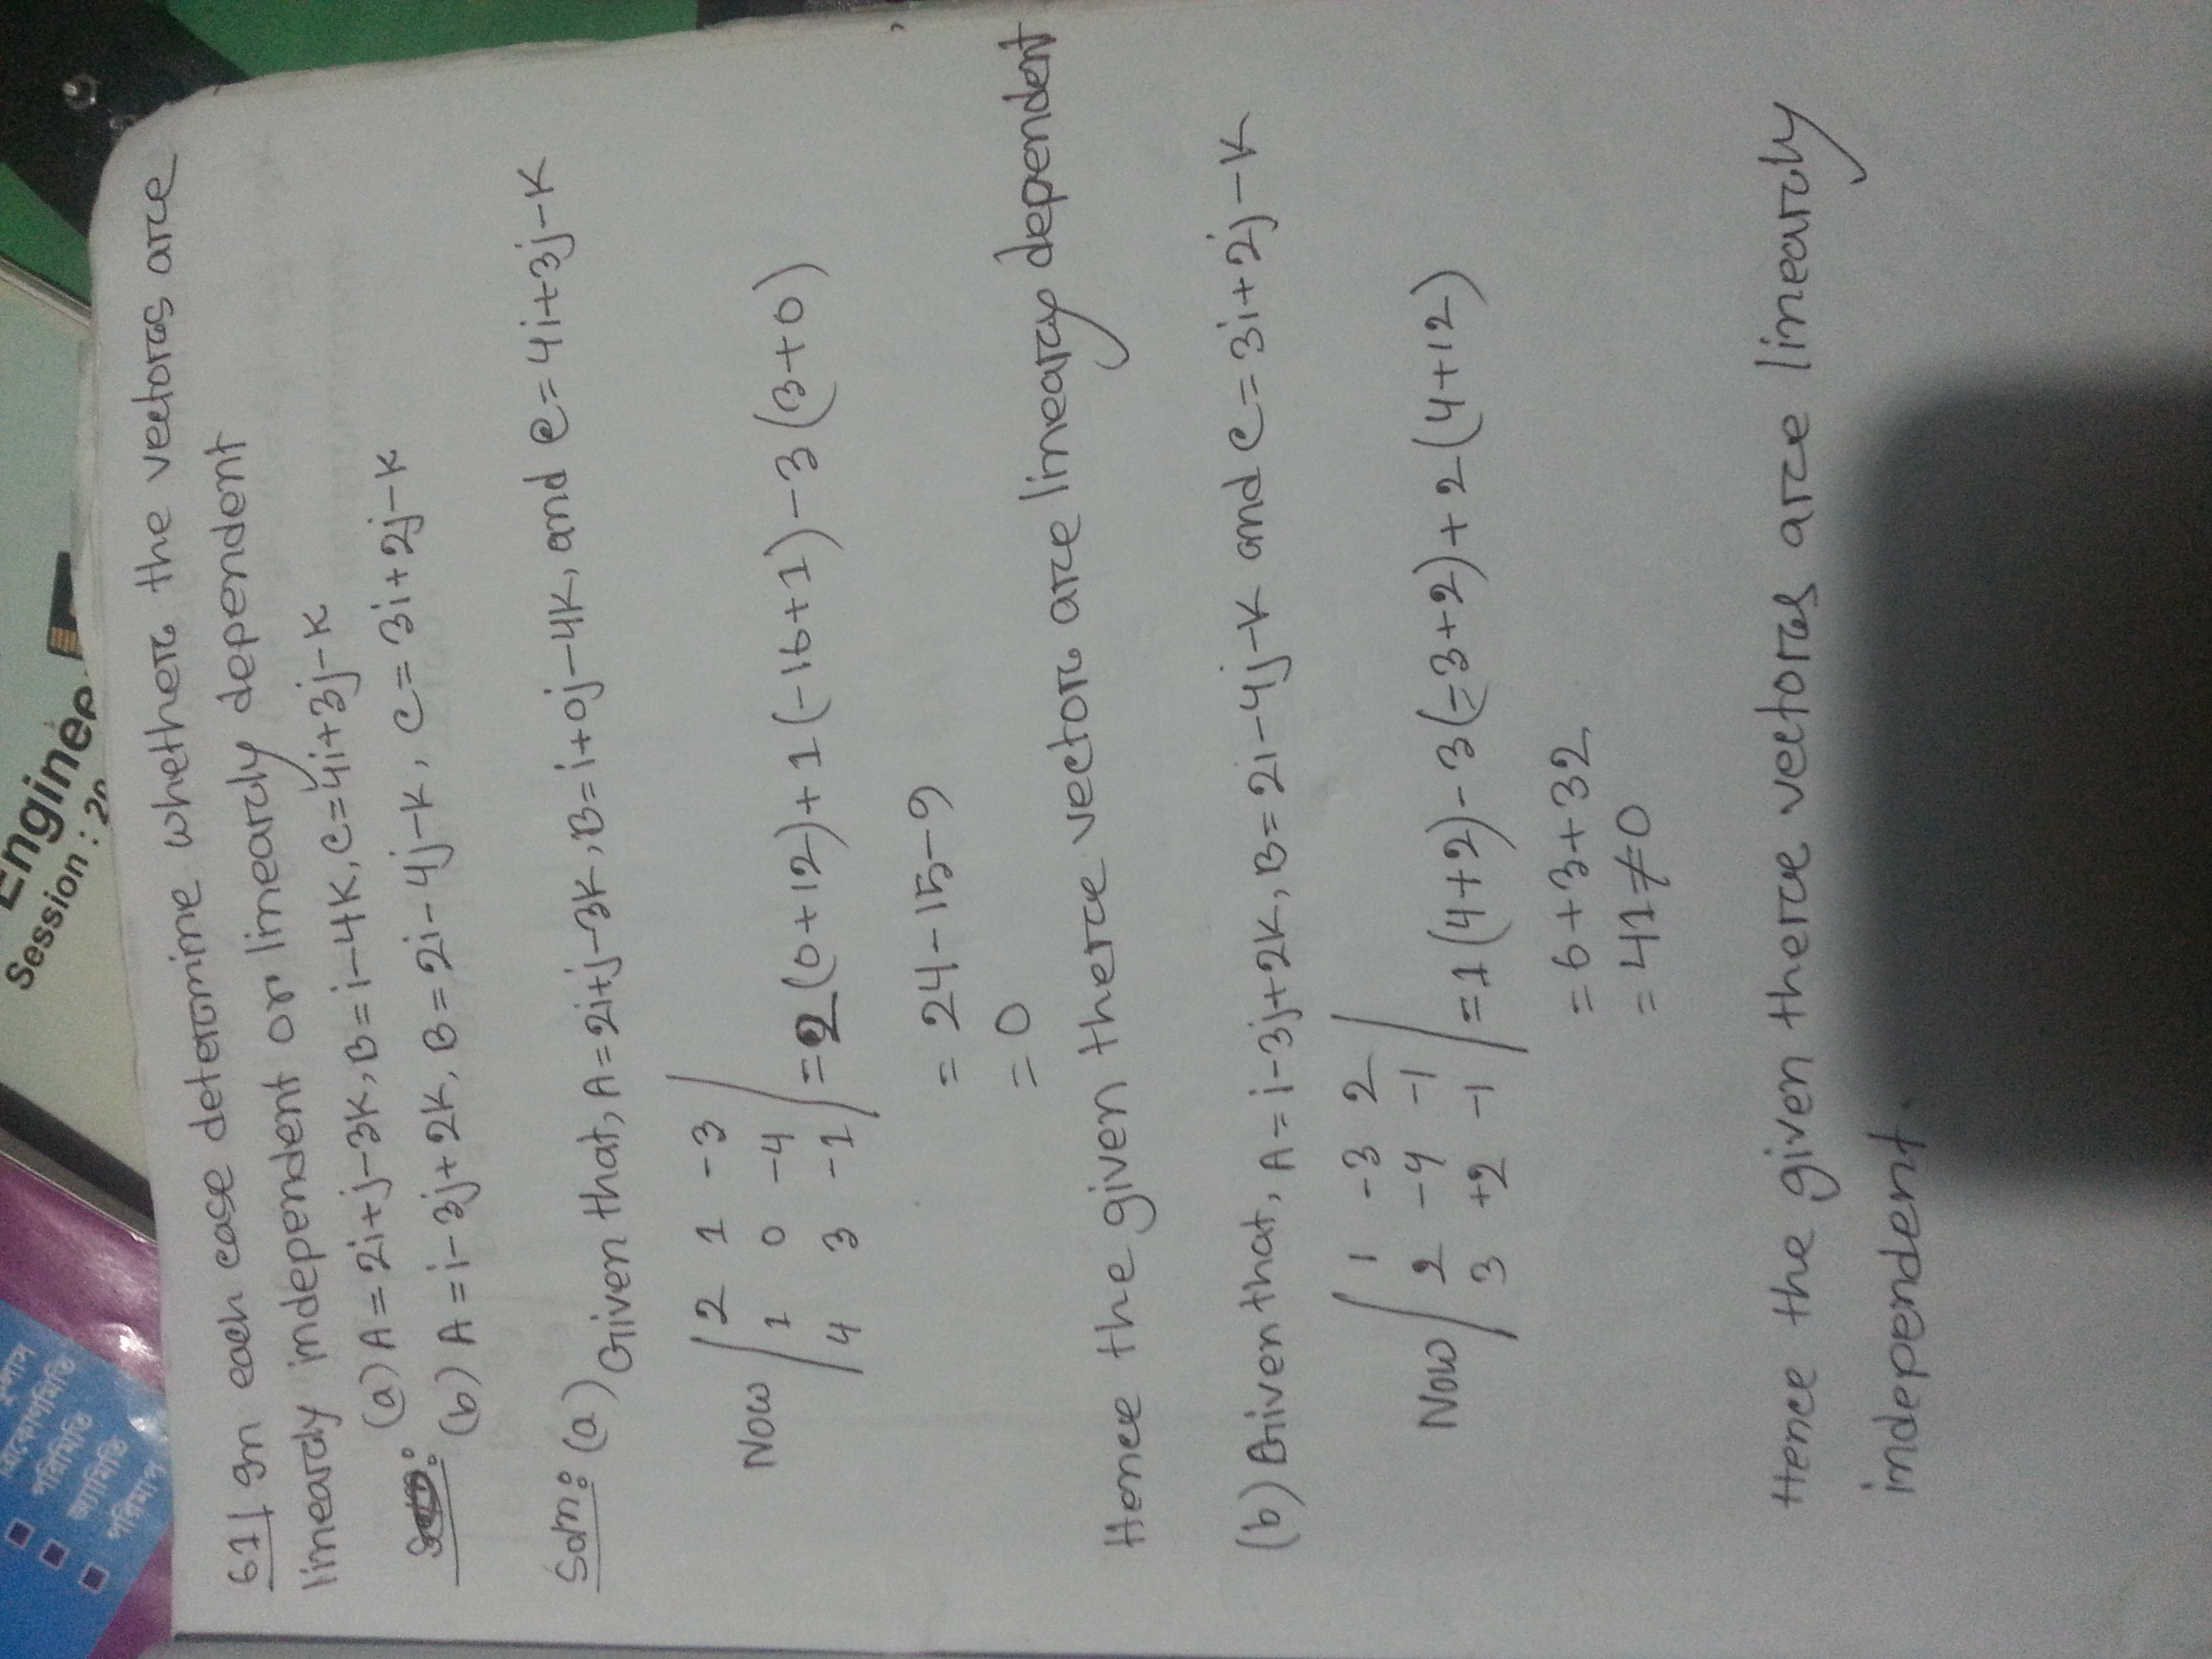 61| In each case determine whether the vectors are
linearly independent or linearly dependent
(a) A = 2i+j-3k, B = i-4k, c = 4i+3j-k
(b) A = i-3j+2k, B = 2i-4j-k, c = 3i+2j-k
Soln: (a) Given that, A = 2i+j-3k, B = i+0j-4k, and c = 4i+3j-k
Now | 2 1 -3
1 0 -4
4 3 -1 | = 2(0+12)+1(-16+1)-3(3+0)
= 24-15-9
= 0
Hence the given there vectors are linearay dependent
(b) Given that, A = i-3j+2k, B = 2i-4j-k and c = 3i+2j-k
Now | 1 -3 2
2 -4 -1
3 +2 -1 | = 1(4+2)-3(-3+2)+2(4+12)
= 6+3+32
= 41 ≠ 0
Hence the given there vectors are linearly
independent.
Engineer
Session : 20